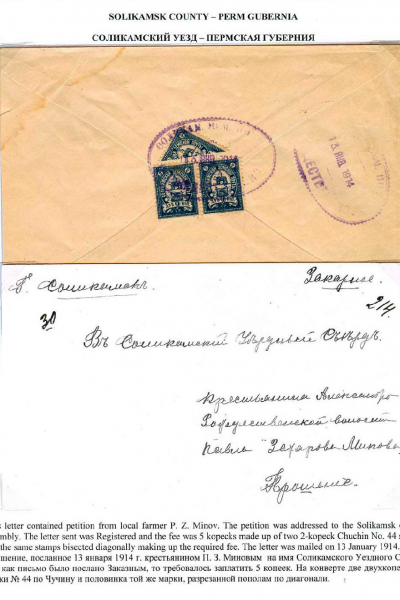 SOLIKAMSK COUNTY – PERM GUBERNIA
СОЛИКАМСКИЙ УЕЗД – ПЕРМСКАЯ ГУБЕРНИЯ
1914
13 ЯНВ. 1914
Г. Соликамскъ.
Заказное.
30
214.
Въ Соликамскій Уѣздный Съѣздъ.
Крестьянина
волости
Павла Захарова Минова
Прошеніе.
s letter contained petition from local farmer P. Z. Minov. The petition was addressed to the Solikamsk
embly. The letter sent was Registered and the fee was 5 kopecks made up of two 2-kopeck Chuchin No. 44
the same stamps bisected diagonally making up the required fee. The letter was mailed on 13 January 1914.
шение, посланное 13 января 1914 г. крестьянином П. З. Миновым на имя Соликамского Уездного С
как письмо было послано Заказным, то требовалось заплатить 5 копеек. На конверте две двухкопе
ки № 44 по Чучину и половинка той же марки, разрезанной пополам по диагонали.